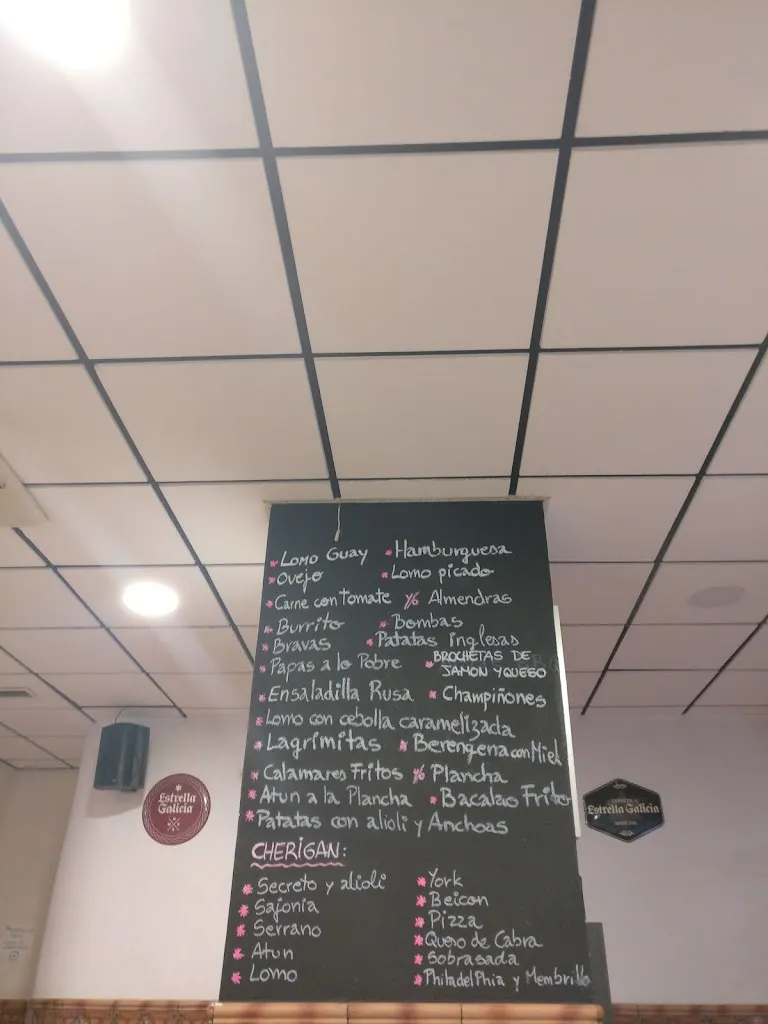 * Lomo Guay * Hamburguesa
* Ovejo * Lomo picado
* Carne con tomate % Almendras
* Burrito * Bombas
* Bravas * Patatas inglesas
* Papas a lo Pobre * BROCHETAS DE
JAMON Y QUESO
* Ensaladilla Rusa * Champiñones
* Lomo con cebolla caramelizada
* Lagrimitas * Berengena con Miel
* Calamares Fritos % Plancha
* Atun a la Plancha * Bacalao Frito
* Patatas con alioli y Anchoas
CHERIGAN:
* Secreto y alioli * York
* Sajonia * Beicon
* Serrano * Pizza
* Atun * Queso de Cabra
* Lomo * Sobrasada
* Philadelphia y Membrillo
Estrella
Galicia
Estrella Galicia